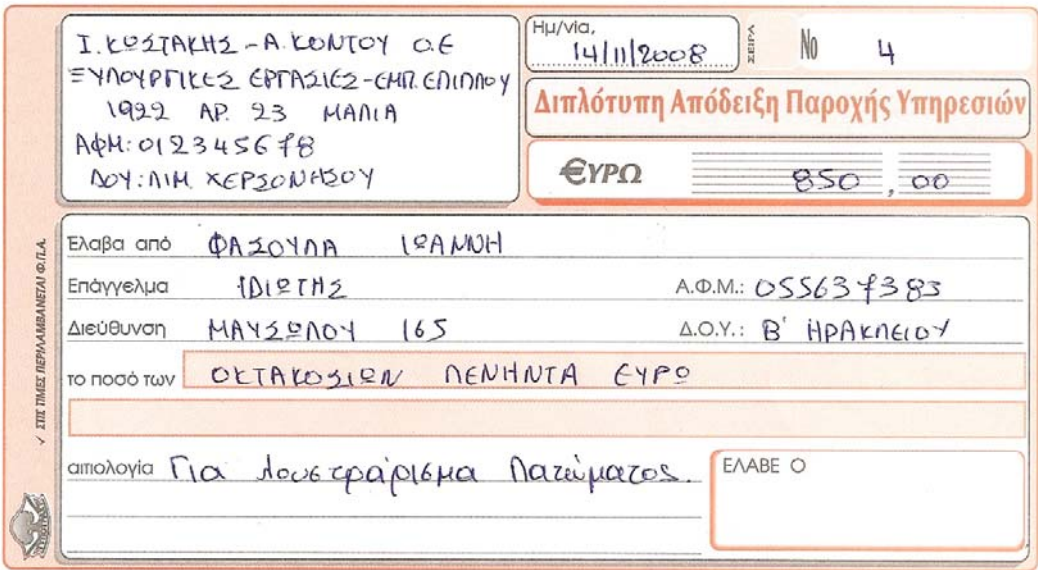 Ι. ΚΩΣΤΑΚΗΣ - Α. ΚΟΝΤΟΥ Ο.Ε
ΞΥΛΟΥΡΓΙΚΕΣ ΕΡΓΑΣΙΕΣ - ΕΜΠ. ΕΠΙΠΛΟΥ
1922 ΑΡ. 23 ΜΑΛΙΑ
ΑΦΜ: 012345678
ΔΟΥ: ΛΙΜ. ΧΕΡΣΟΝΗΣΟΥ
Ημ/νία, 14/11/2008
ΣΕΙΡΑ
No 4
Διπλότυπη Απόδειξη Παροχής Υπηρεσιών
€ΥΡΩ 850,00
Έλαβα από ΦΑΣΟΥΛΑ ΙΩΑΝΝΗ
Επάγγελμα ΙΔΙΩΤΗΣ Α.Φ.Μ.: 055637383
Διεύθυνση ΜΑΥΣΩΛΟΥ 165 Δ.Ο.Υ.: Β' ΗΡΑΚΛΕΙΟΥ
το ποσό των ΟΚΤΑΚΟΣΙΩΝ ΠΕΝΗΝΤΑ ΕΥΡΩ
αιτιολογία Για λουστράρισμα Πατώματος.
ΕΛΑΒΕ Ο
✓ ΣΤΙΣ ΤΙΜΕΣ ΠΕΡΙΛΑΜΒΑΝΕΤΑΙ Φ.Π.Α.